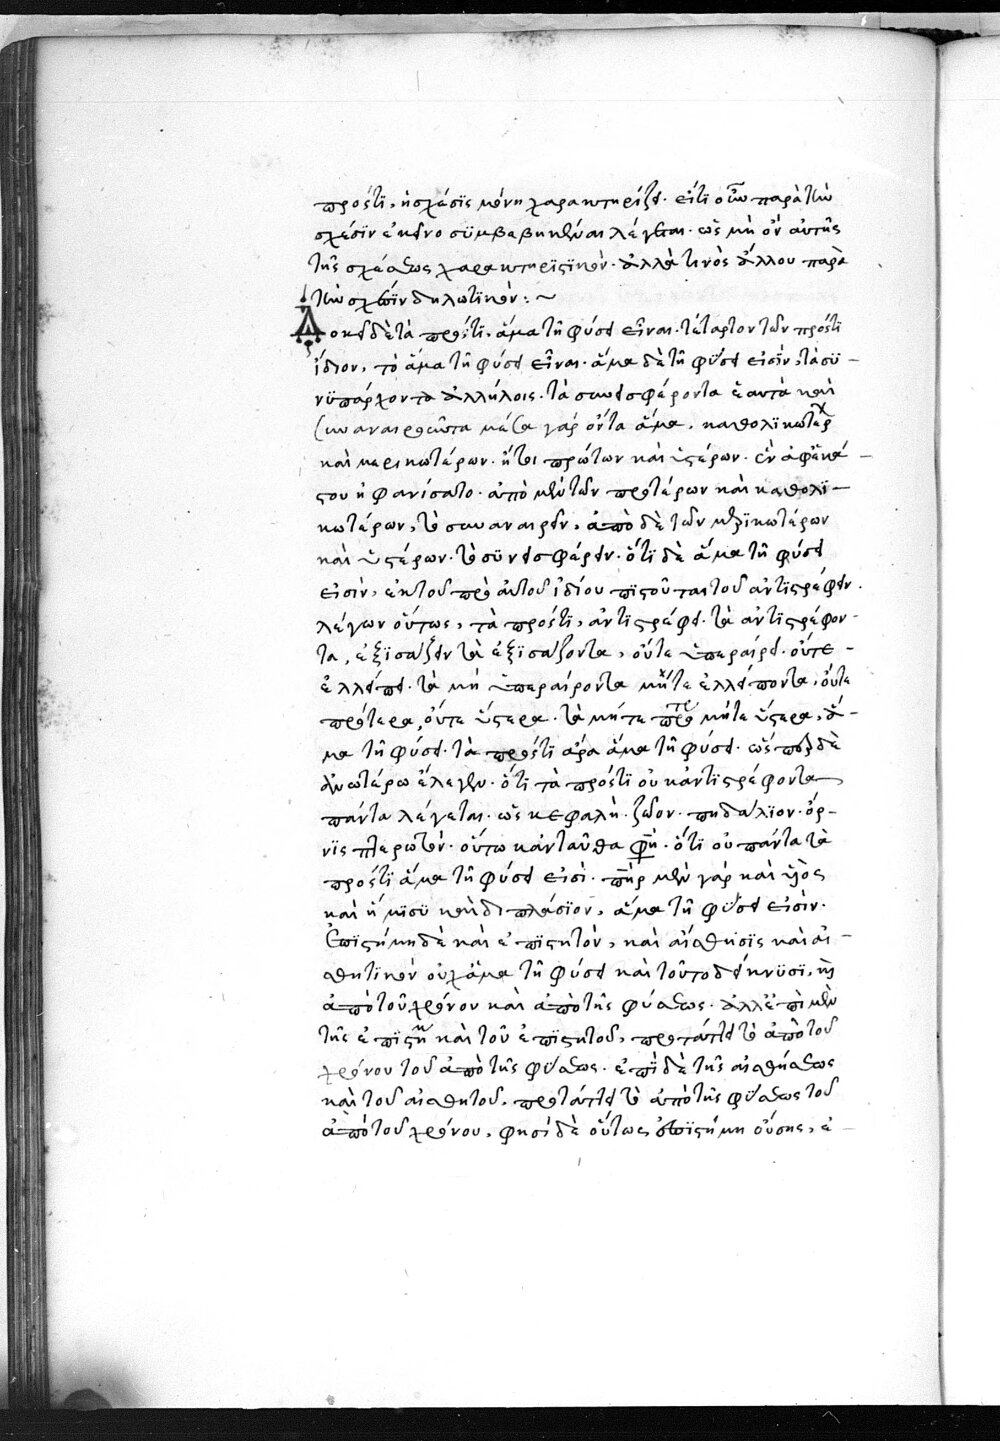 πρόστϊ, ἡ σχέσϊς μόνη χαρακτηρίζει. εἴτϊ οὖν παρὰ τὴν
σχέσϊν ἐκεῖνο συμβεβηκέναι λέγεται. ὡς μὴ ὂν αὐτῆς
τῆς σχέσεως χαρακτηρϊστϊκὸν. ἀλλὰ τινὸς ἄλλου παρὰ
τὴν σχέσϊν δηλωτϊκὸν: ~
Δοκεῖ δὲ τὰ πρόστϊ, ἅμα τῇ φύσει εἶναι. τέταρτον τῶν πρόστϊ
ἴδιον, τὸ ἅμα τῇ φύσει εἶναι. ἅμα δὲ τῇ φύσει εἰσὶν, τὰ συ –
νϋπάρχοντα ἀλλήλοις. τὰ συνεισφέροντα ἑαυτὰ καὶ
συναναιροῦντα μέσα γάρ ὄντα ἅμα, καθολϊκωτέρων
καὶ μερικωτέρων. ἤτοι πρώτων καὶ ὑστέρων. ἐν ἀφ' ἑκά –
στου ἠρανίσατο. ἀπὸ μὲν τῶν προτέρων καὶ καθολϊ –
κωτέρων, τὸ συναναιρεῖν, ἀπὸ δὲ τῶν μερϊκωτέρων
καὶ ὑστέρων. τὸ συνεισφέρειν. ὅτϊ δὲ ἅμα τῇ φύσει
εἰσὶν, ἐκ τοῦ πρὸ αὐτοῦ ἰδίου πϊστοῦται τοῦ ἀντϊστρέφειν.
λέγων οὕτως, τὰ πρόστϊ, ἀντϊστρέφει. τὰ ἀντϊστρέφον-
τα, ἐξϊσάζειν τὰ ἐξϊσάζοντα, οὔτε ὑπεραίρει. οὔτε –
ἐλλείπει. τὰ μὴ ὑπεραίροντα μήτε ἐλλείποντα, οὔτε
πρότερα, οὔτε ὕστερα. τὰ μήτε πρότερα μήτε ὕστερα, ἅ –
μα τῇ φύσει. τὰ πρόστϊ ἄρα ἅμα τῇ φύσει. ὥσπερ δὲ
ἀνωτέρω ἔλεγεν. ὅτϊ τὰ πρόστϊ οὐκ ἀντϊστρέφοντα
πάντα λέγεται. ὡς κεφαλὴ. ζῶον. πηδάλϊον. ὄρ-
νϊς πτερωτὸν. οὕτω κἀνταῦθα φησὶν. ὅτι οὐ πάντα τὰ
πρόστϊ ἅμα τῇ φύσει εἰσὶ. πὴρ μὲν γάρ καὶ υἱὸς
καὶ ἥμϊσϋ καὶ διπλάσϊον, ἅμα τῇ φύσει εἰσὶν.
Ἐπϊστήμη δὲ καὶ ἐπϊστητὸν, καὶ αἴσθησϊς καὶ αἰ –
σθητϊκὸν οὐχ ἅμα τῇ φύσει καὶ τοῦτο δείκνυσϊ, καὶ
ἀπὸ τοῦ χρόνου καὶ ἀπὸ τῆς φύσεως. ἀλλ' ἐπὶ μὲν
τῆς ἐπϊστήμης καὶ τοῦ ἐπϊστητοῦ, προτάττει τὸ ἀπὸ τοῦ
χρόνου τοῦ ἀπὸ τῆς φύσεως. ἐπϊ δὲ τῆς αἰσθήσεως
καὶ τοῦ αἰσθητοῦ, προτάττει τὸ ἀπὸ τῆς φύσεως τοῦ
ἀπὸ τοῦ χρόνου, φησὶ δὲ οὕτως, ἐπϊστήμη οὔσης, ἐ –